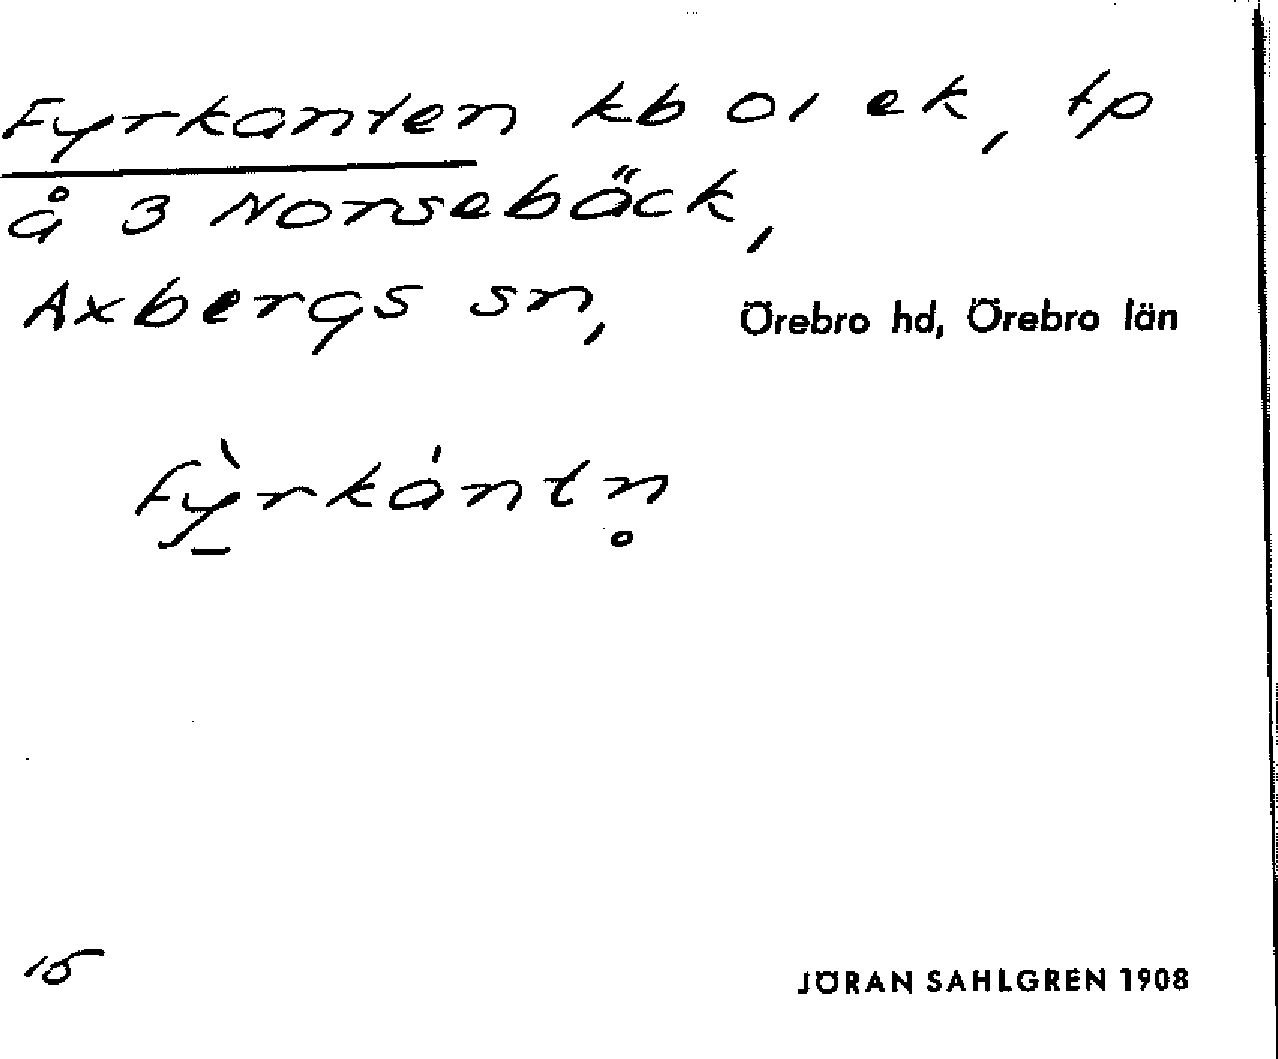 Fyrkanten kb o, ek, tp
å 3 Norsebäck,
Axbergs sn, Örebro hd, Örebro län
Fỳ̠rkántn̥
15
JÖRAN SAHLGREN 1908